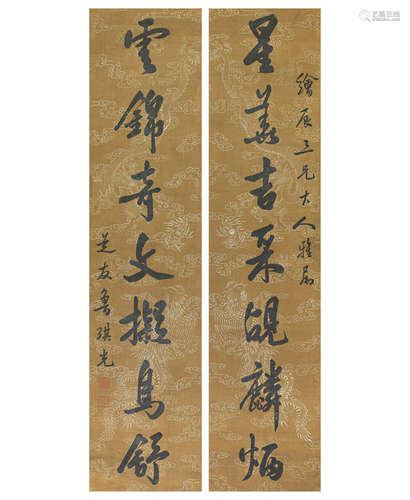 繪辰三兄大人雅屬
星義吉采麟炳
雲錦奇文擬鳥舒
芝友魯琪光
艺狐在线